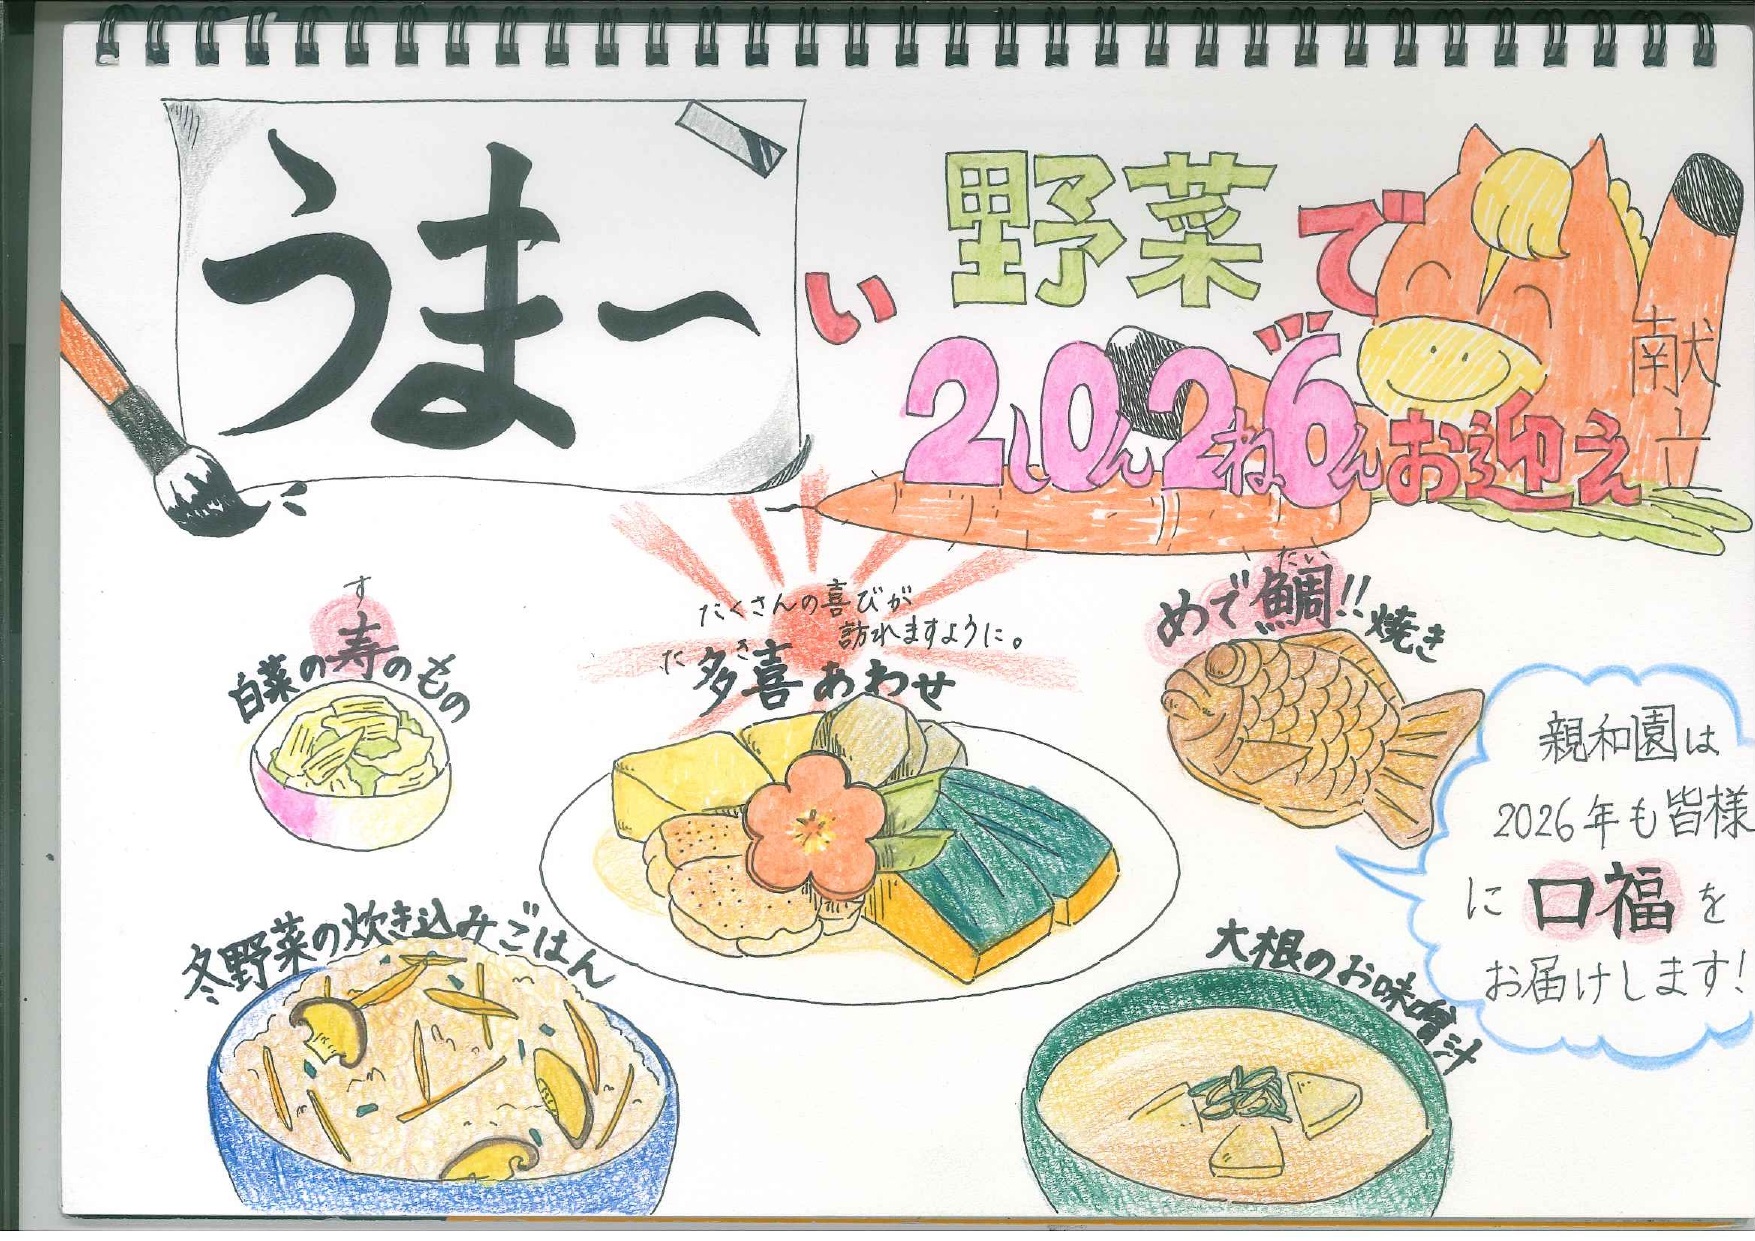 うまーい野菜で
2し0ん2ね6ん゛お迎え
献立
す
白菜の寿のもの
たくさんの喜びが
訪れますように。
た き
多喜あわせ
たい
めで鯛!!焼き
親和園は
2026年も皆様
に口福を
お届けします!
冬野菜の炊き込みごはん
大根のお味噌汁